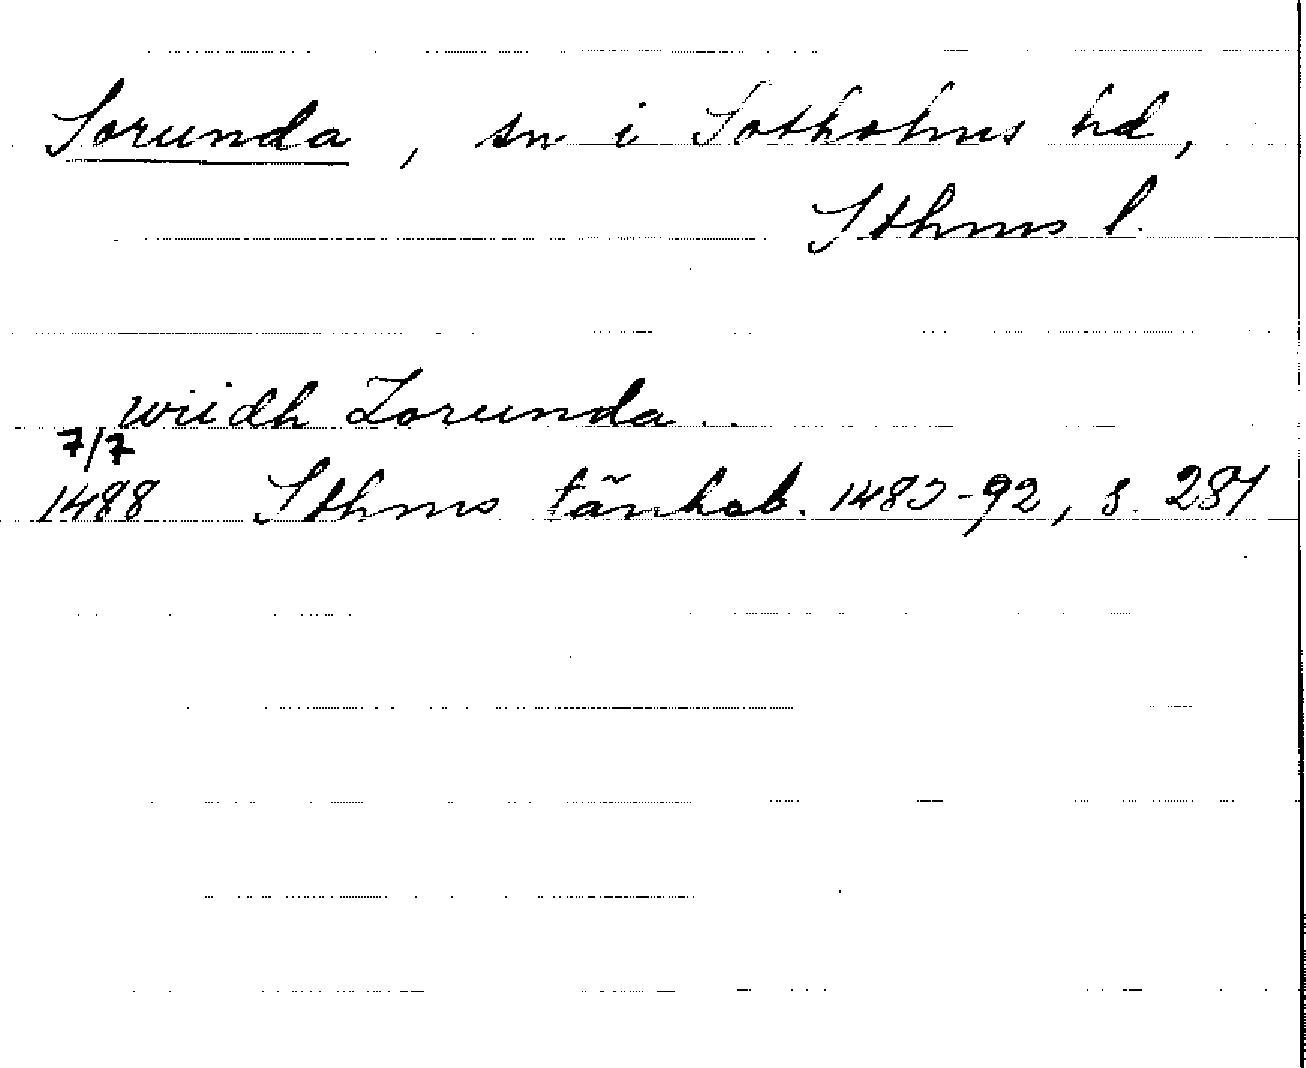 Sorunda, sn i Sotholms hd,
Sthms l.
wiidh Zorunda..
7/7
1488 Sthms tänkeb. 1483-92, s. 284